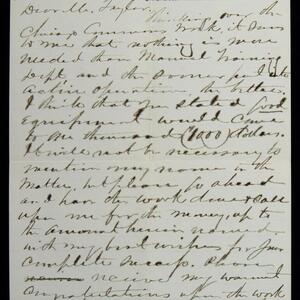 Dear Mr. Taylor
Thinking over the
Chicago Commons Work, it seems
to me that nothing is more
needed than Manual Training
Dept. and the sooner put into
active operation, the better.
I think that you stated good
Equipment would come
to one thousand (1000) dollars.
It will not be necessary to
mention my name in the
Matter, but please go ahead
and have the work done & call
upon me for the money, up to
the amount herein named
with my best wishes for your
complete success. Please
receive my warmest
Congratulations upon the work